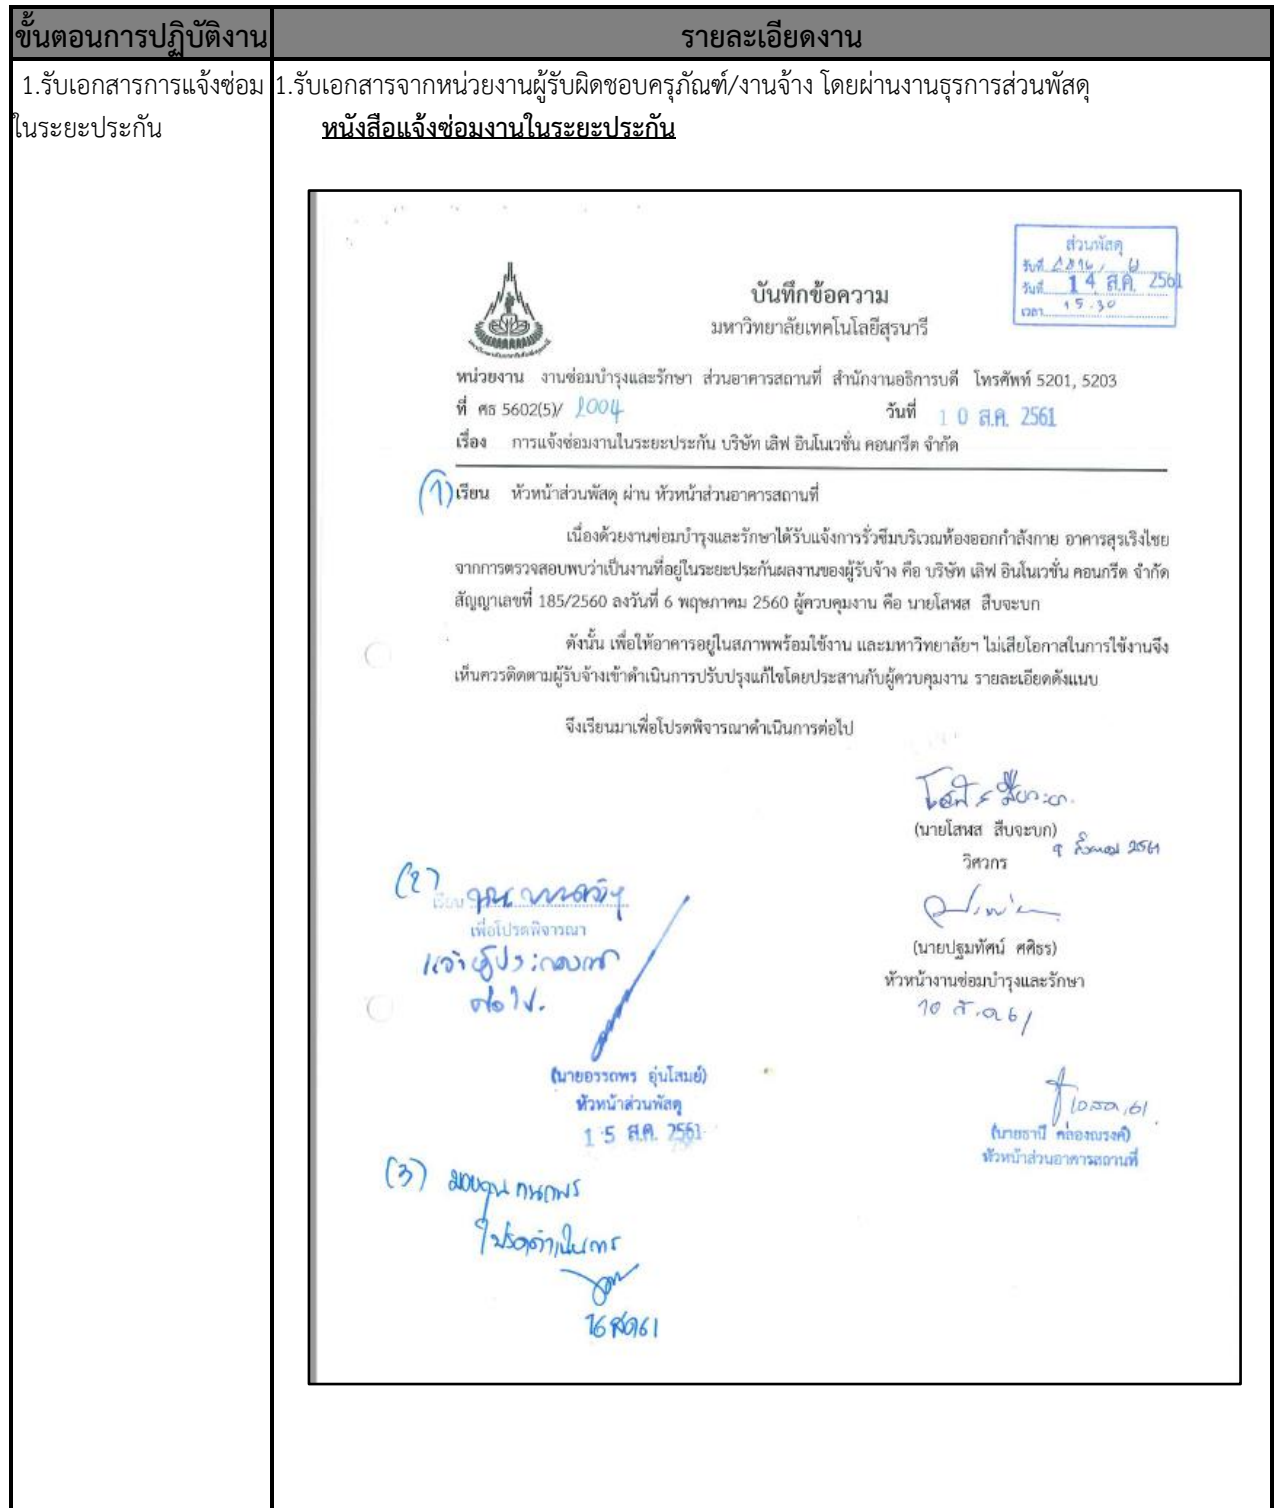 ขั้นตอนการปฏิบัติงาน
รายละเอียดงาน
1.รับเอกสารการแจ้งซ่อม
ในระยะประกัน
1.รับเอกสารจากหน่วยงานผู้รับผิดชอบครุภัณฑ์/งานจ้าง โดยผ่านงานธุรการส่วนพัสดุ
หนังสือแจ้งซ่อมงานในระยะประกัน
ส่วนพัสดุ
รับที่
วันที่ 14 ส.ค. 2561
เวลา 15.30
บันทึกข้อความ
มหาวิทยาลัยเทคโนโลยีสุรนารี
หน่วยงาน งานซ่อมบำรุงและรักษา ส่วนอาคารสถานที่ สำนักงานอธิการบดี โทรศัพท์ 5201, 5203
ที่ ศธ 5602(5)/ 2004 วันที่ 10 ส.ค. 2561
เรื่อง การแจ้งซ่อมงานในระยะประกัน บริษัท เลิฟ อินโนเวชั่น คอนกรีต จำกัด
(1) เรียน หัวหน้าส่วนพัสดุ ผ่าน หัวหน้าส่วนอาคารสถานที่
เนื่องด้วยงานซ่อมบำรุงและรักษาได้รับแจ้งการรั่วซึมบริเวณห้องออกกำลังกาย อาคารสุรเริงไชย
จากการตรวจสอบพบว่าเป็นงานที่อยู่ในระยะประกันผลงานของผู้รับจ้าง คือ บริษัท เลิฟ อินโนเวชั่น คอนกรีต จำกัด
สัญญาเลขที่ 185/2560 ลงวันที่ 6 พฤษภาคม 2560 ผู้ควบคุมงาน คือ นายโสฬส สืบจะบก
ดังนั้น เพื่อให้อาคารอยู่ในสภาพพร้อมใช้งาน และมหาวิทยาลัยฯ ไม่เสียโอกาสในการใช้งานจึง
เห็นควรติดตามผู้รับจ้างเข้าดำเนินการปรับปรุงแก้ไขโดยประสานกับผู้ควบคุมงาน รายละเอียดดังแนบ
จึงเรียนมาเพื่อโปรดพิจารณาดำเนินการต่อไป
(นายโสฬส สืบจะบก)
9 สิงหาคม 2561
วิศวกร
(นายปฐมทัศน์ ศศิธร)
หัวหน้างานซ่อมบำรุงและรักษา
10 ส.ค 61
(2)
เรียน คุณ
เพื่อโปรดพิจารณา
แจ้งผู้ประกอบการ
ต่อไป.
(นายอรรถพร อุ่นโสมย์)
หัวหน้าส่วนพัสดุ
15 ส.ค. 2561
10 ส.ค. 61
(นายธานี คล่องณรงค์)
หัวหน้าส่วนอาคารสถานที่
(3) มอบคุณ กนกพร
โปรดดำเนินการ
16 ส.ค 61